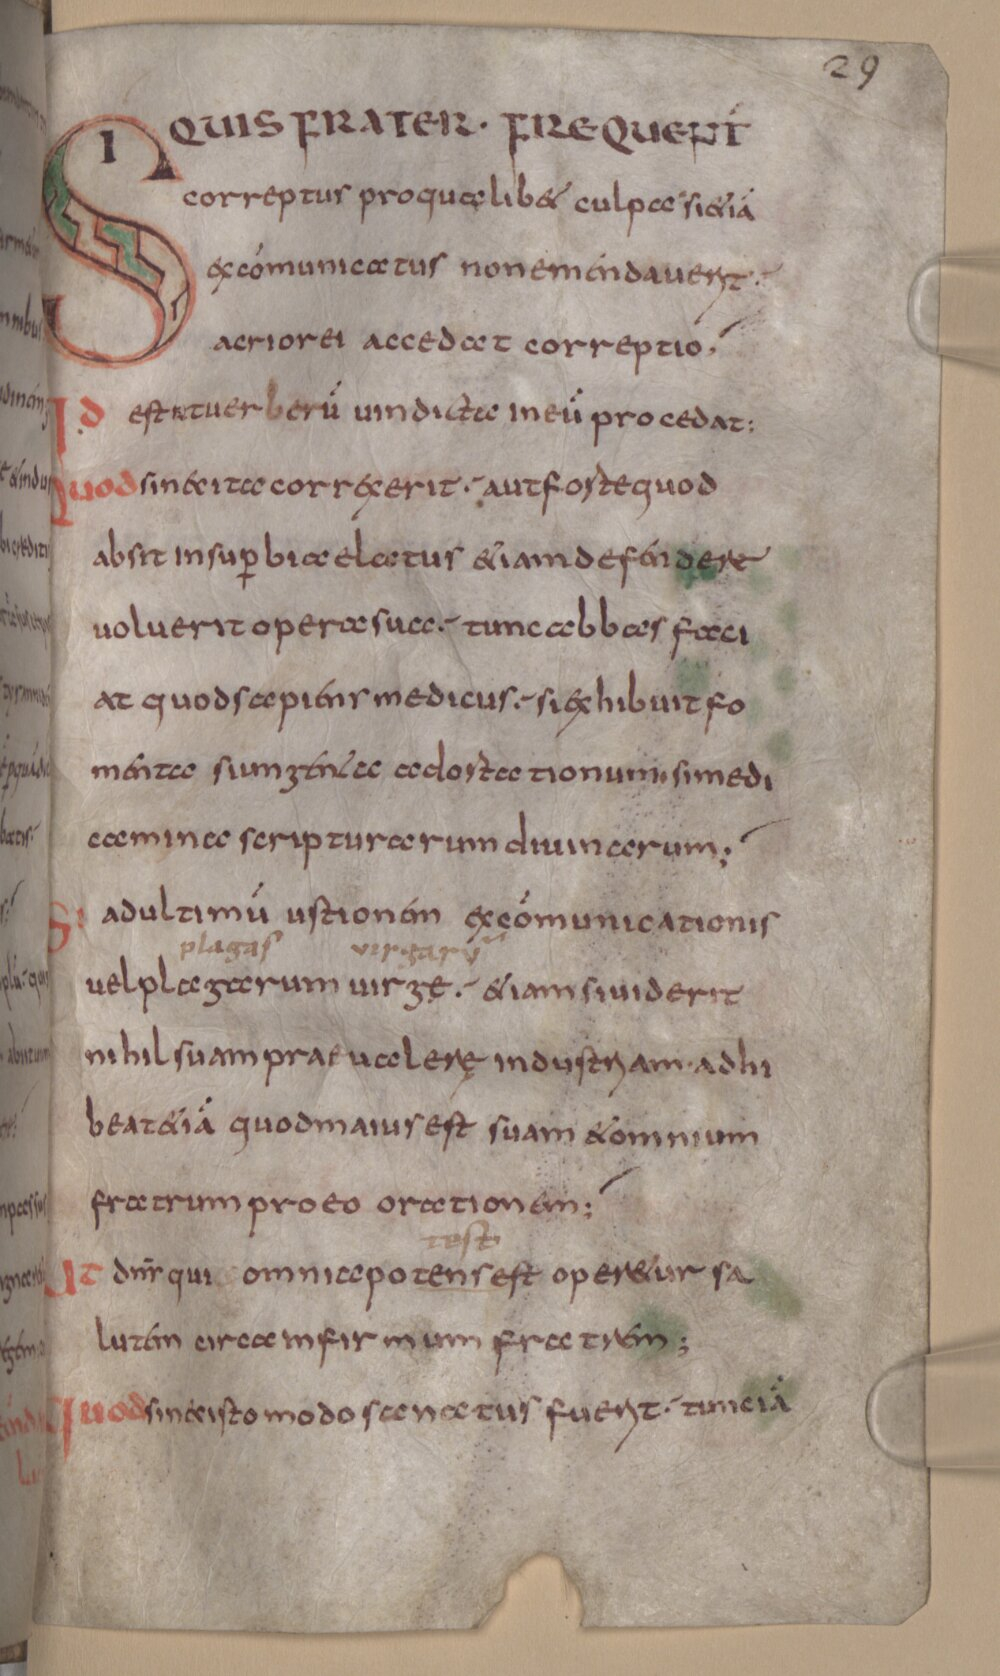 29
SI QUIS FRATER · FREQUENT̄
correptus proqualib& culpa si&iā
excōmunicatus nonemendauerit ·
acriorei accedat correptiō;
Id est utuerberū uindicta ineū procedat:
Quod sinecita correxerit · autfortequod
absit insup̱bia elatus &iamdefendere
uoluerit opera sua · tunc abbas faci
at quodsapiens medicus · siexhibuit fo
menta siungenta adortationum simedi
camina scripturarum diuinarum;
Si adultimū ustionem excōmunicationis
plagas virgarū
uelplagarum uirgę · &iamsiuiderit
nihil suam praeualere industriam · adhi
beat&iā quodmaius est suam &omnium
fratrum proeo orationem;
Ut dn̄s qui omniapotens est oper&ur sa
lutem circa infirmum fratrem;
Quod sinecisto modo sanatus fuerit · tunc iā